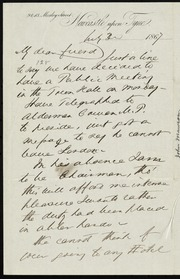 Newcastle upon Tyne
July 3 1867
My dear friend Just a line
to say we have decided to
have a Public Meeting
in the Town Hall on Monday
Have Telegraphed to
Alderman Cowen M.P.
to preside, and got a
message to say he cannot
leave London.
In his absence I am
to be Chairman, tho'
this will afford me intense
pleasure I would rather
the duty had been placed
in abler hands.
We cannot think of
your going to any Hotel